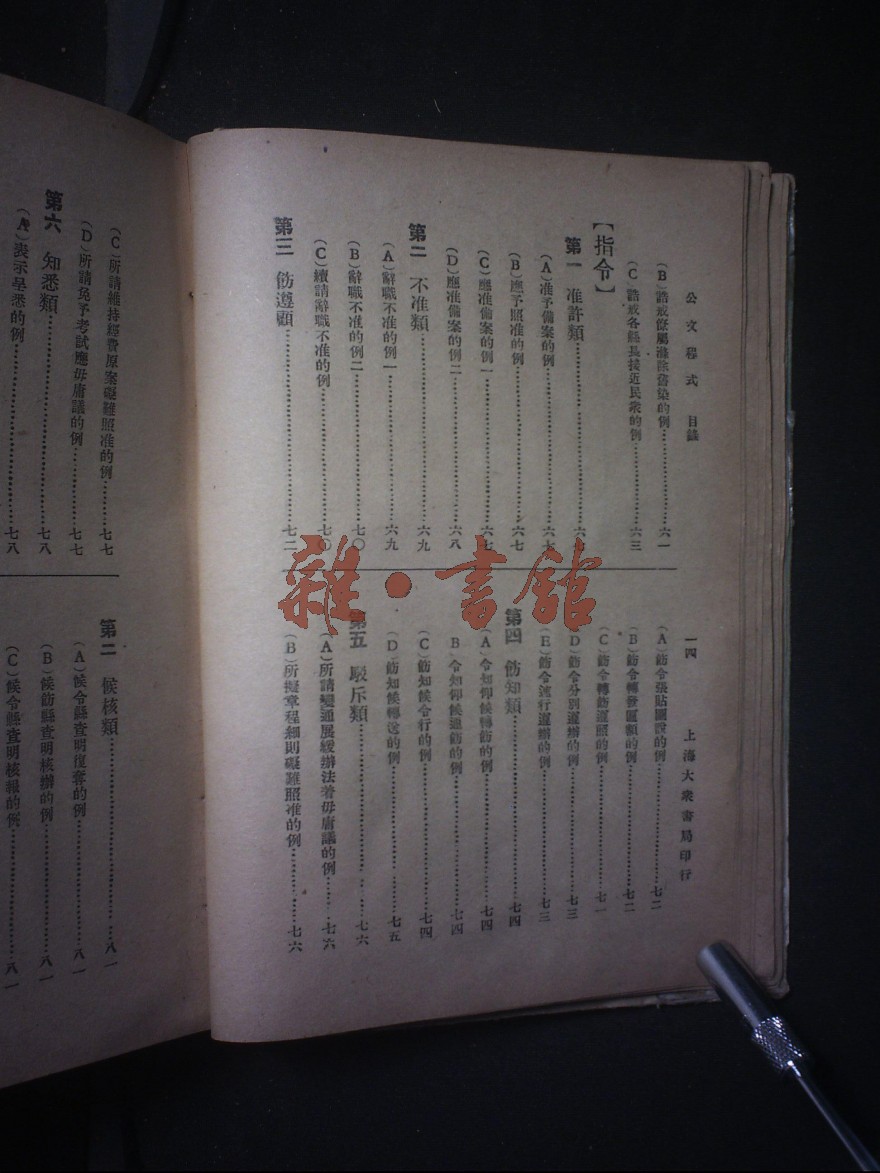 公文程式 目錄
一四
上海大衆書局印行
(B)誥戒僚屬滌除舊染的例…………六一
(C)誥戒各縣長接近民衆的例…………六三
【指令】
第一 准許類…………六七
(A)准予備案的例…………六七
(B)應予照准的例…………六七
(C)應准備案的例一…………六七
(D)應准備案的例二…………六八
第二 不准類…………六九
(A)辭職不准的例一…………六九
(B)辭職不准的例二…………七〇
(C)續請辭職不准的例…………七〇
第三 飭遵顧…………七二
(A)飭令張貼圖說的例…………七二
(B)飭令轉發匾額的例…………七二
(C)飭令轉飭遵照的例…………七一
(D)飭令分別遵辦的例…………七三
(E)飭令遴行遵辦的例…………七三
第四 飭知類…………七四
(A)令知仰候轉飭的例…………七四
B 令知仰候通飭的例…………七四
(C)飭知候令行的例…………七四
(D)飭知候轉送的例…………七五
第五 駁斥類…………七六
(A)所請變通展緩辦法著毋庸議的例…………七六
(B)所擬章程細則礙難照准的例…………七六
(C)所請維持經費原案礙難照准的例…………七七
(D)所請免予考試應毋庸議的例…………七七
第六 知悉類…………七八
(A)表示呈悉的例…………七八
第二 候核類…………八一
(A)候令縣查明復奪的例…………八一
(B)候飭縣查明核辦的例…………八一
(C)候令縣查明核報的例…………八一
雜·書館